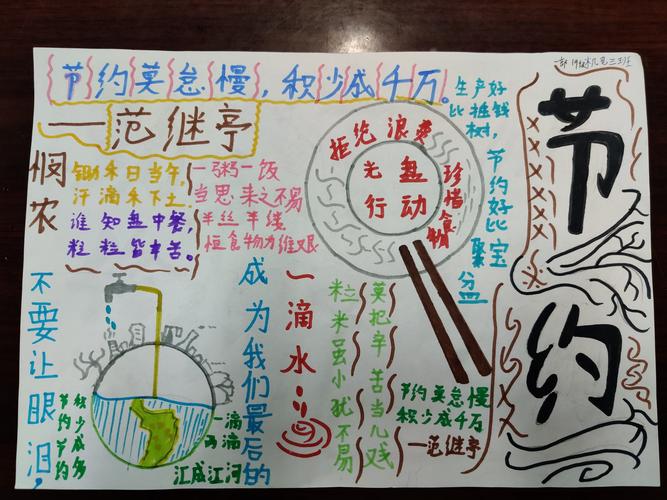 三班
节约莫怠慢，积少成千万。
—范继亭
悯农
锄禾日当午，
汗滴禾下土。
谁知盘中餐，
粒粒皆辛苦。
一粥一饭
当思来之不易
半丝半缕
恒食物力维艰
拒绝浪费
珍惜食物
光盘
行动
生产好
比摇钱
树，
节约好比聚宝盆
节约
不要让眼泪，
成为我们最后的
一滴水
粒米虽小犹不易
莫把辛苦当儿戏
节约莫怠慢
积少成千万
—范继亭
节约节约
积少成多
一滴
两滴
汇成江河